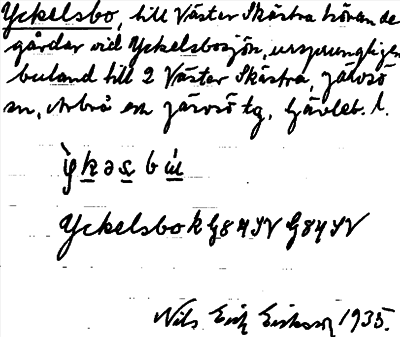 Yckelsbo, till Väster Skästra hörande
gårdar vid Yckelsbosjön, ursprungligen
buland till 2 Väster Skästra, Järvsö
sn, Arbrå och Järvsö tg, Gävleb. l.
Yckelsbo k G84SV G84SV
Nils Erik Eriksson 1935.